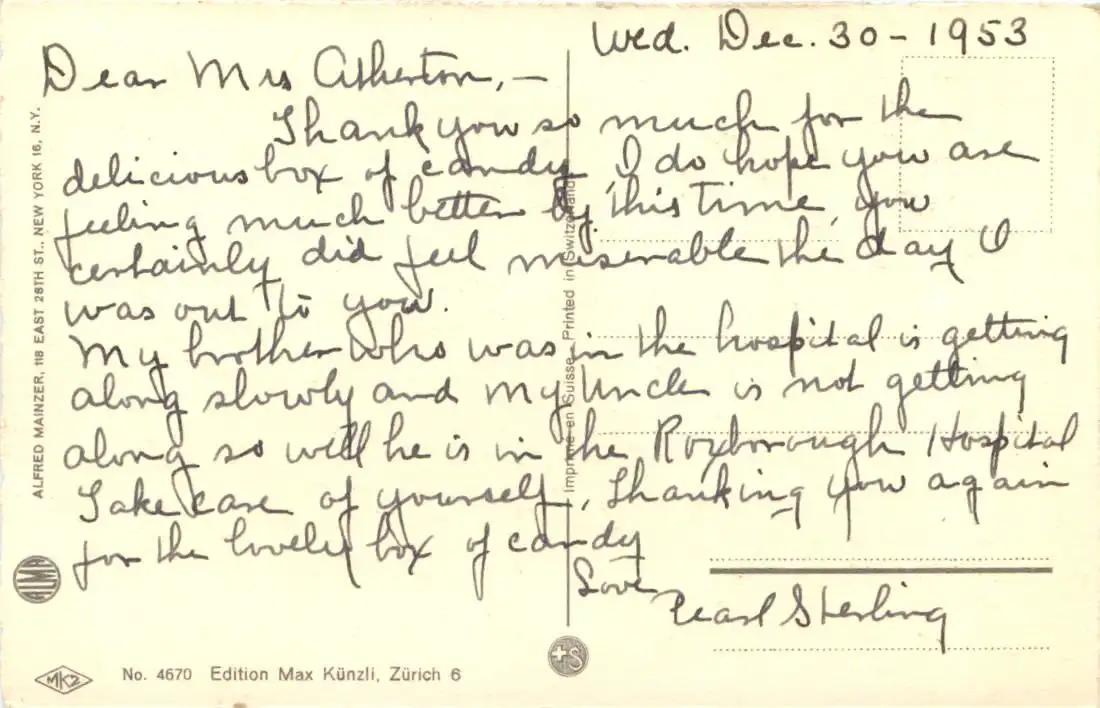 Wed. Dec. 30 - 1953
Dear Mrs Atherton, -
Thank you so much for the
delicious box of candy, I do hope you are
feeling much better by this time, you
certainly did feel miserable the day I
was out to you.
My brother who was in the hospital is getting
along slowly and my Uncle is not getting
along so well he is in the Roxborough Hospital
Take care of yourself, Thanking you again
for the lovely box of candy
Love
Pearl Sterling
ALFRED MAINZER, 118 EAST 28TH ST., NEW YORK 16, N.Y.
ALMA
Imprimé en Suisse - Printed in Switzerland
MK2
No. 4670 Edition Max Künzli, Zürich 6
+S